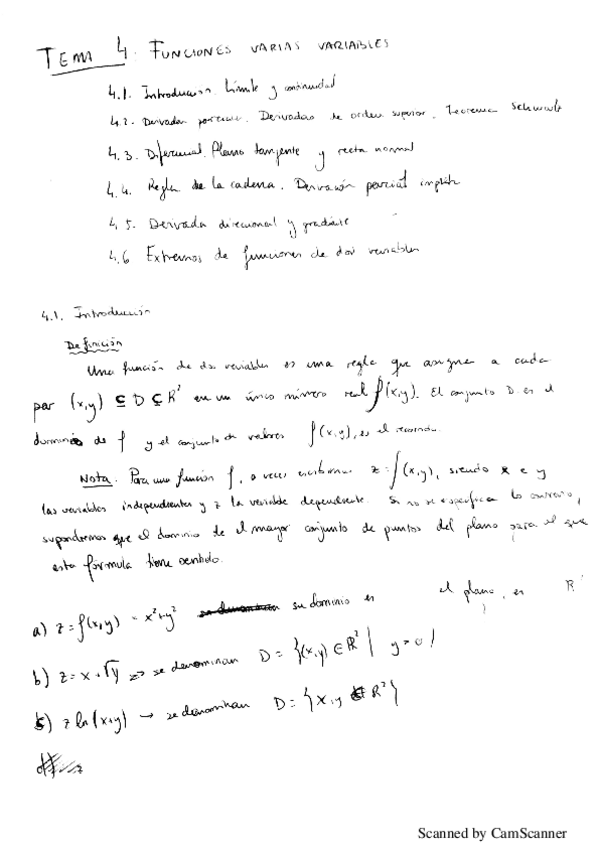 TEMA 4. FUNCIONES VARIAS VARIABLES
4.1. Introducción. Límite y continuidad
4.2. Derivadas parciales. Derivadas de orden superior. Teorema Schwartz
4.3. Diferencial. Plano tangente y recta normal
4.4. Regla de la cadena. Derivación parcial implíc
4.5. Derivada direccional y gradiente
4.6 Extremos de funciones de dos variables
4.1. Introducción
Definición
Una función de dos variables es una regla que asigna a cada
par (x,y) ⊆ D ⊆ R² en un único número real f(x,y). El conjunto D es el
dominio de f y el conjunto de valores f(x,y), es el
Nota. Para una función f, a veces escribimos z = f(x,y), siendo x e y
las variables independientes y z la variable dependiente. Si no se especifica lo contrario,
supondremos que el dominio de el mayor conjunto de puntos del plano para el que
esta fórmula tiene sentido.
a) z = f(x,y) = x²+y² su dominio es el plano, es R²
b) z = x + √y → se denominan D = {(x,y) ∈ R² | y > 0}
z ln(x+y) → se denominan D = {x,y R²}
Scanned by CamScanner